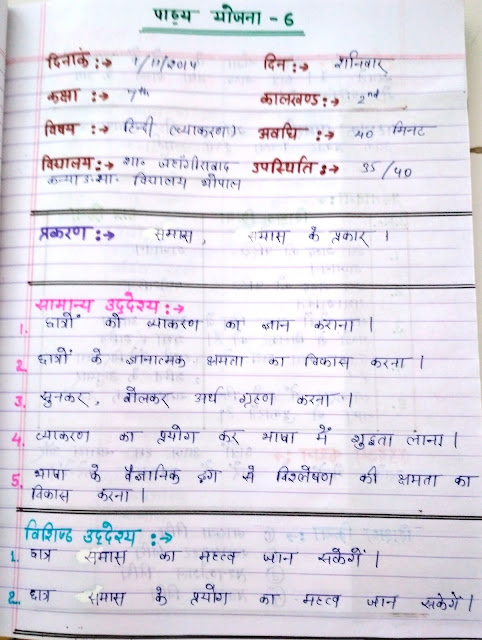 पाठ्य योजना - 6
दिनांक :→ 1/11/2014 दिन :→ शनिवार
कक्षा :→ 7th कालखण्ड :→ 2nd
विषय :→ हिन्दी (व्याकरण) अवधि :→ 40 मिनट
विद्यालय :→ शा० जहांगीराबाद उपस्थिति :→ 35/40
कन्या उ. मा. विद्यालय भोपाल
प्रकरण :→ समास, समास के प्रकार ।
सामान्य उद्देश्य :→
1. छात्रों को व्याकरण का ज्ञान कराना ।
2. छात्रों के ज्ञानात्मक क्षमता का विकास करना ।
3. सुनकर, बोलकर अर्थ ग्रहण करना ।
4. व्याकरण का प्रयोग कर भाषा में शुद्धता लाना ।
5. भाषा के वैज्ञानिक ढंग से विश्लेषण की क्षमता का
विकास करना ।
विशिष्ट उद्देश्य :→
1. छात्र समास का महत्व जान सकेगें ।
2. छात्र समास के प्रयोग का महत्व जान सकेगें ।